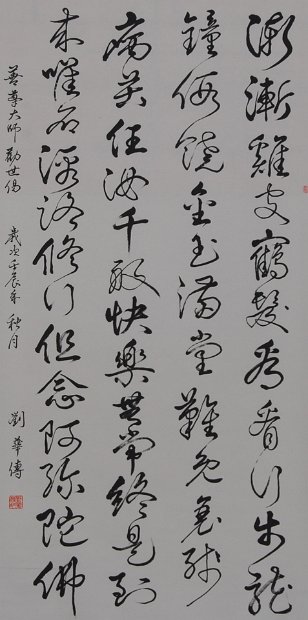 渐渐雞皮鶴髮看看行步龍
鐘假饒金玉滿堂難免衰殘
病苦任汝千般快樂無常終是到
来唯有徑路修行但念阿弥陀佛
善導大師勸世偈 歲次壬辰年秋月 劉華傳